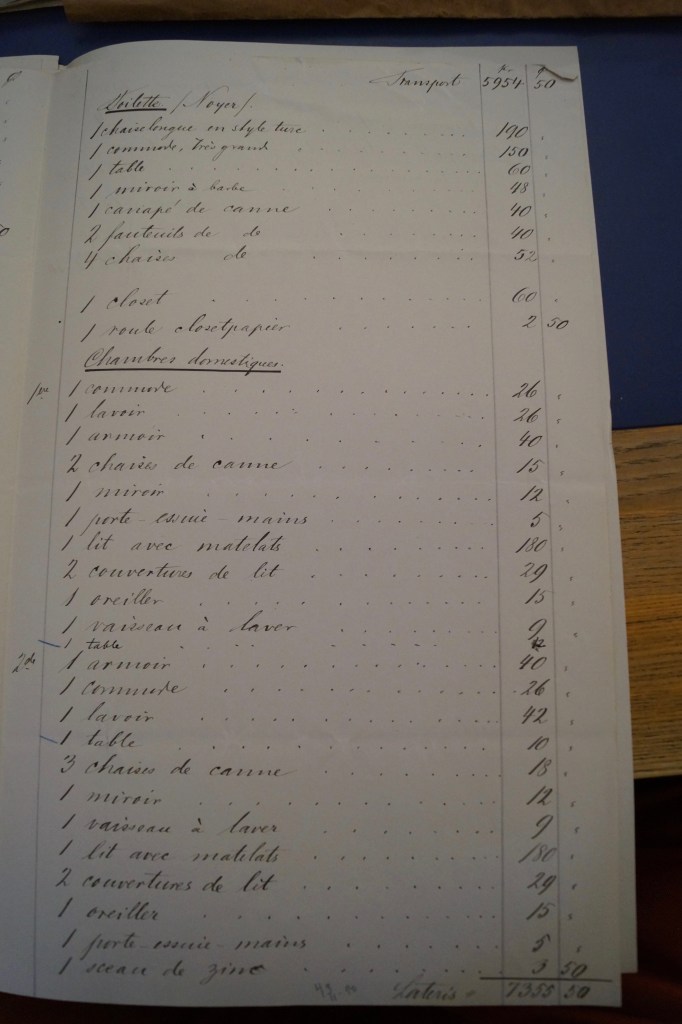 Transport 5954 50
Toilette (Noyer).
1 chaiselongue en style turc . . . . . . 190 "
1 commode, très grand . . . . . . 150 "
1 table . . . . . . 60 "
1 miroir à barbe . . . . . . 48 "
1 canapé de canne . . . . . . 40 "
2 fauteuils de do . . . . . . 40 "
4 chaises do . . . . . . 52 "
1 closet . . . . . . 60 "
1 roule closetpapier . . . . . . 2 50
Chambres domestiques.
1re 1 commode . . . . . . 26 "
1 lavoir . . . . . . 26 "
1 armoir . . . . . . 40 "
2 chaises de canne . . . . . . 15 "
1 miroir . . . . . . 12 "
1 porte-essuie-mains . . . . . . 5 "
1 lit avec matelats . . . . . . 180 "
2 couvertures de lit . . . . . . 29 "
1 oreiller . . . . . . 15 "
1 vaisseau à laver . . . . . . 9 "
1 table . . . . . .
2de 1 armoir . . . . . . 40 "
1 commode . . . . . . 26 "
1 lavoir . . . . . . 42 "
1 table . . . . . . 10 "
3 chaises de canne . . . . . . 18 "
1 miroir . . . . . . 12 "
1 vaisseau à laver . . . . . . 9 "
1 lit avec matelats . . . . . . 180 "
2 couvertures de lit . . . . . . 29 "
1 oreiller . . . . . . 15 "
1 porte-essuie-mains . . . . . . 5 "
1 sceau de zinc . . . . . . 3 50
Lateris 7355 50